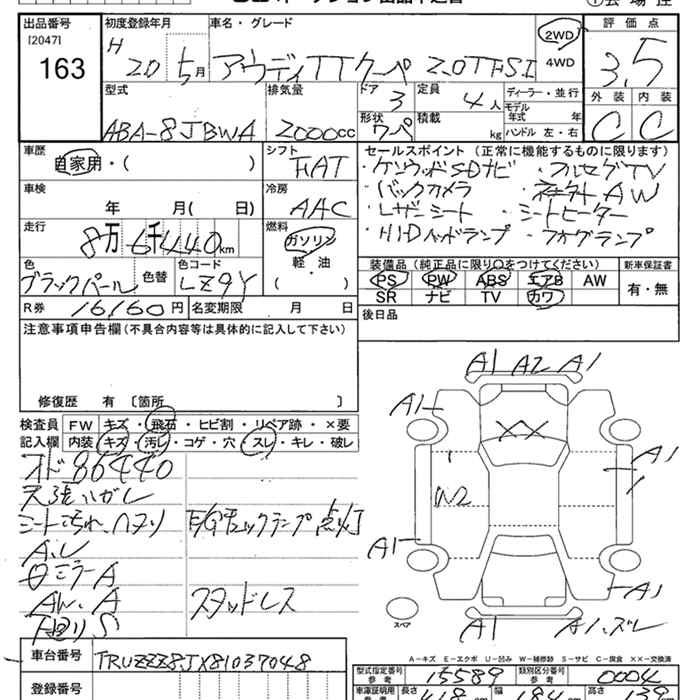 出品番号 初度登録年月 車名・グレード 2WD 評価点
[2047] H
163 20 5月 アウディTTクーペ 2.0TFSI 4WD 3.5
型式 排気量 ドア 3 定員 4人 ディーラー・並行 外装 内装
モデル年式 年
ABA-8JBWA 2000cc 形状 クーペ 積載 kg ハンドル 左・右 C C
車歴 シフト セールスポイント(正常に機能するものに限ります)
自家用・( ) FAT ・ケンウッドSDナビ ・フルセグTV
車検 冷房 ・バックカメラ ・社外AW
年 月( 日) AAC ・レザーシート ・シートヒーター
走行 燃料 ・HIDヘッドランプ ・フォグランプ
8万6千440km ガソリン
色 色替 色コード 軽・油 装備品(純正品に限り○をつけてください) 新車保証書
ブラックパール LZ9Y ( ) PS PW ABS エアB AW 有・無
R券 16160円 名変期限 月 日 SR ナビ TV カワ
注意事項申告欄(不具合内容等は具体的に記入して下さい) 後日品
修復歴 有 〔箇所 〕
A1 A2 A1
検査員 FW キズ・飛石・ヒビ割・リペア跡・×要 A1
記入欄 内装 キズ・汚レ・コゲ・穴・スレ・キレ・破レ XX
オド86440 A1
天張ハガレ W2
シート汚れ、ヘタリ E/Gチェックランプ点灯
A1
ミラーA A1
AW、A スタッドレス
下廻りS スペア A1 A1、ズレ
車台番号 TRUZZZ8JX81037048 A-キズ E-エクボ U-凹み W-補修跡 S-サビ C-腐食 XX-交換済
型式指定番号 参考 15589 類別区分番号 参考 0004
登録番号 車検証明用 参考 長さ 418cm 幅 184cm 高さ 139